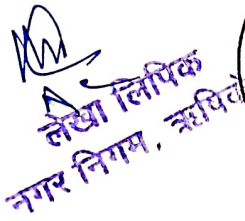 लेखा लिपिक
नगर निगम, ऋषिके